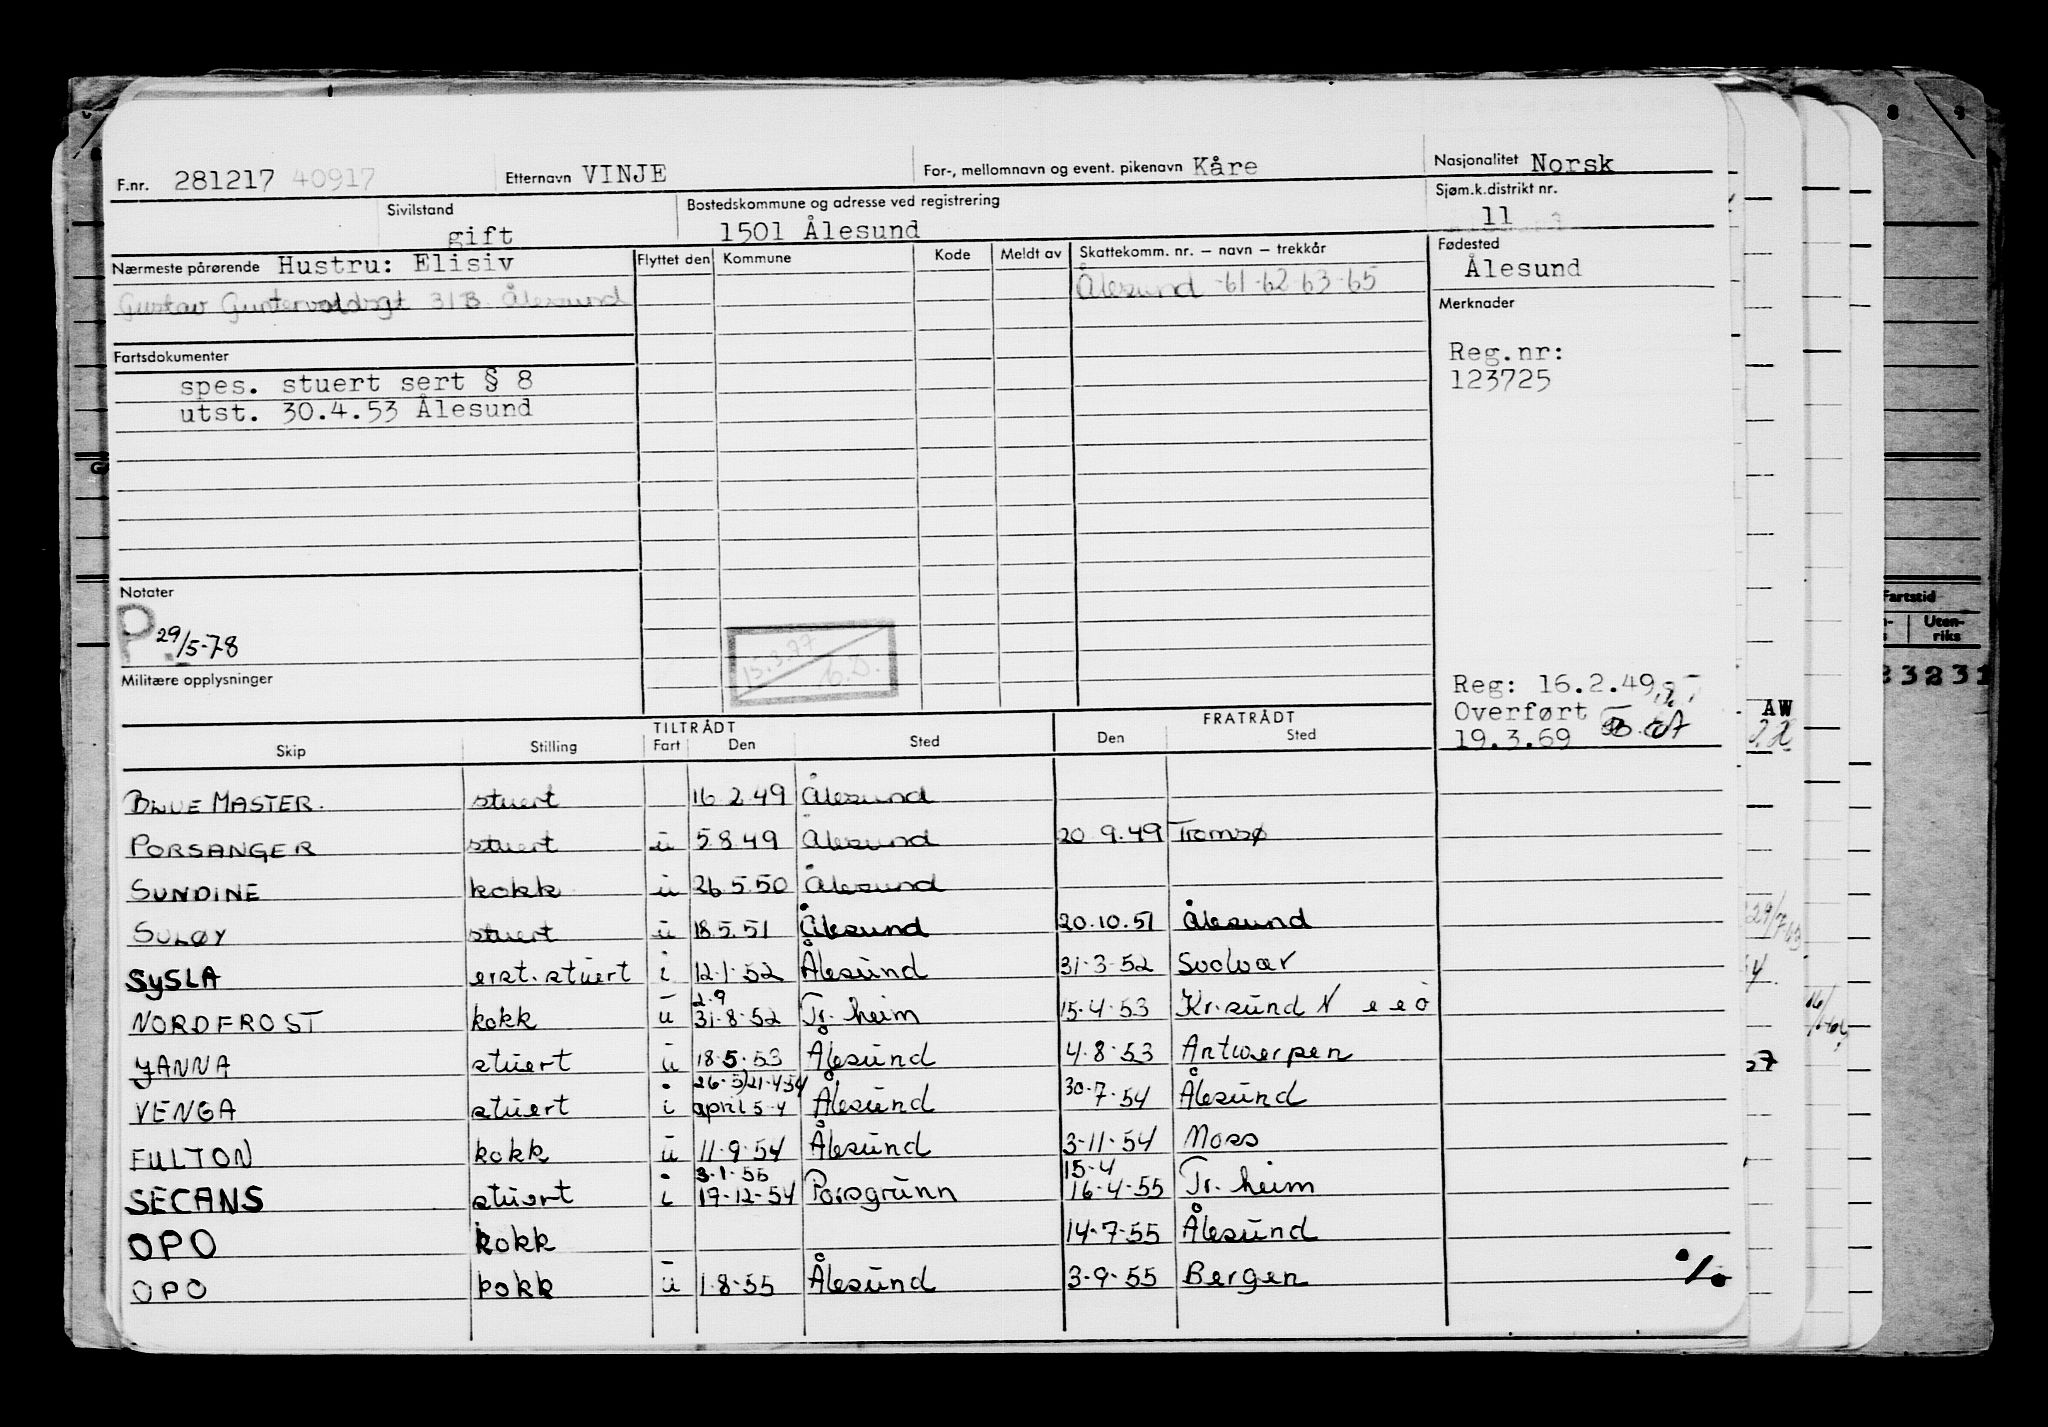 F.nr. 281217 40917 Etternavn VINJE For-, mellomnavn og event. pikenavn Kåre Nasjonalitet Norsk
Sivilstand gift Bostedskommune og adresse ved registrering 1501 Ålesund Sjøm.k.distrikt nr. 11
Nærmeste pårørende Hustru: Elisiv
31B Ålesund
Flyttet den Kommune Kode Meldt av Skattekomm. nr. – navn – trekkår
Ålesund -61-62 63-65
Fødested
Ålesund
Merknader
Reg.nr:
123725
Fartsdokumenter
spes. stuert sert § 8
utst. 30.4.53 Ålesund
Notater
P 29/5-78
15.3.77
Militære opplysninger
Reg: 16.2.49
Overført
19.3.69
TILTRÅDT FRATRÅDT
Skip Stilling Fart Den Sted Den Sted
BLUE MASTER. stuert 16.2.49 Ålesund
PORSANGER stuert u 5.8.49 Ålesund 20.9.49 Tromsø
SUNDINE kokk u 26.5.50 Ålesund
SULØY stuert u 18.5.51 Ålesund 20.10.51 Ålesund
SySLA erst.stuert i 12-1-52 Ålesund 31-3-52 Svolvær
2.9
NORDFROST kokk u 31-8-52 Tr. heim 15-4-53 Kr.sund N
JANNA stuert u 18-5-53 Ålesund 4-8-53 Antwerpen
VENGA stuert i april 54 Ålesund 30-7-54 Ålesund
FULTON kokk u 11-9-54 Ålesund 3-11-54 Moss
3-1-55 15-4
SECANS stuert i 19-12-54 Porsgrunn 16-4-55 Tr. heim
OPO kokk 14-7-55 Ålesund
OPO kokk u 1-8-55 Ålesund 3-9-55 Bergen
Fartstid
Uten-
riks
AW